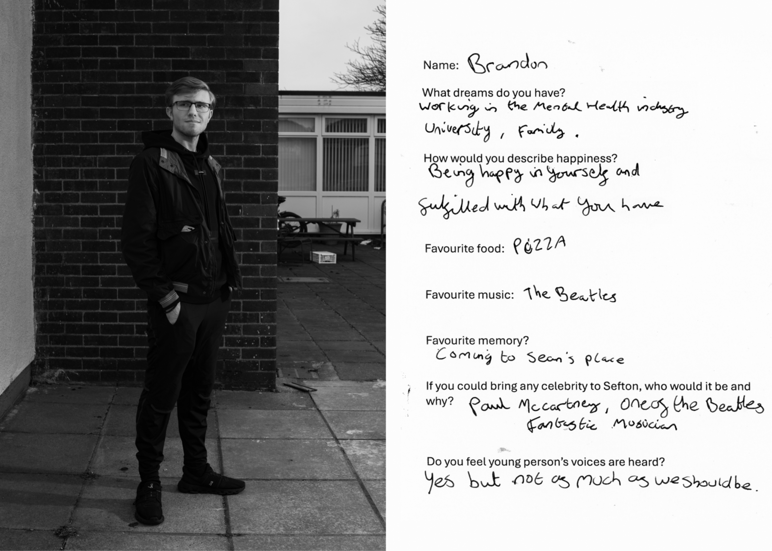 Name: Brandon
What dreams do you have?
Working in the Mental Health industry
University, Family.
How would you describe happiness?
Being happy in yourself and
fulfilled with what you have
Favourite food: PIZZA
Favourite music: The Beatles
Favourite memory?
Coming to Sean's place
If you could bring any celebrity to Sefton, who would it be and
why? Paul Mccartney, One of the Beatles
Fantastic Musician
Do you feel young person's voices are heard?
Yes but not as much as we should be.